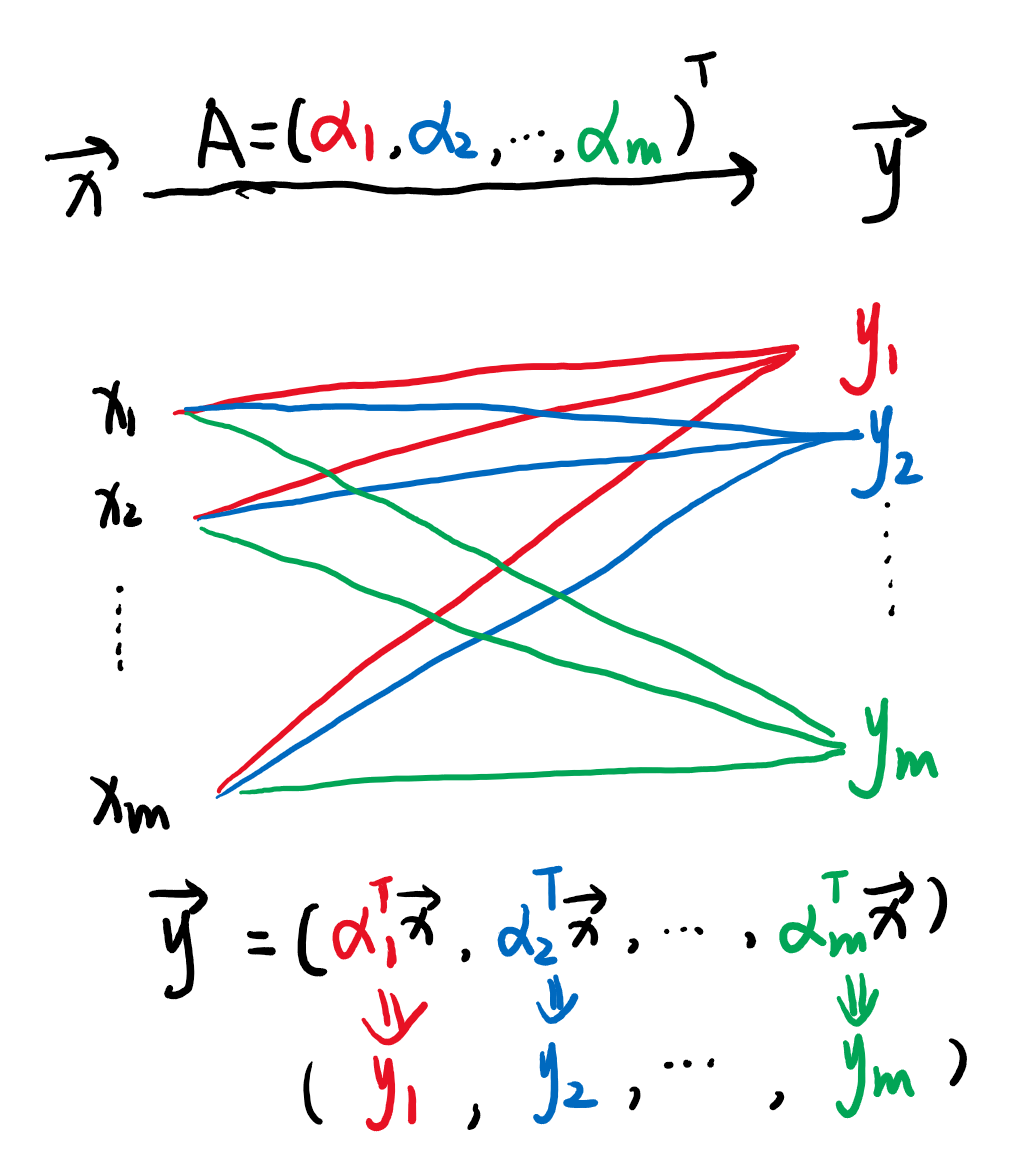 x⃗ A=(α₁,α₂,…,αₘ)ᵀ y⃗
y₁
x₁
y₂
x₂
⋮ ⋮
yₘ
xₘ
y⃗ = (α₁ᵀx⃗, α₂ᵀx⃗, …, αₘᵀx⃗)
⇓ ⇓ ⇓
(y₁, y₂, …, yₘ)